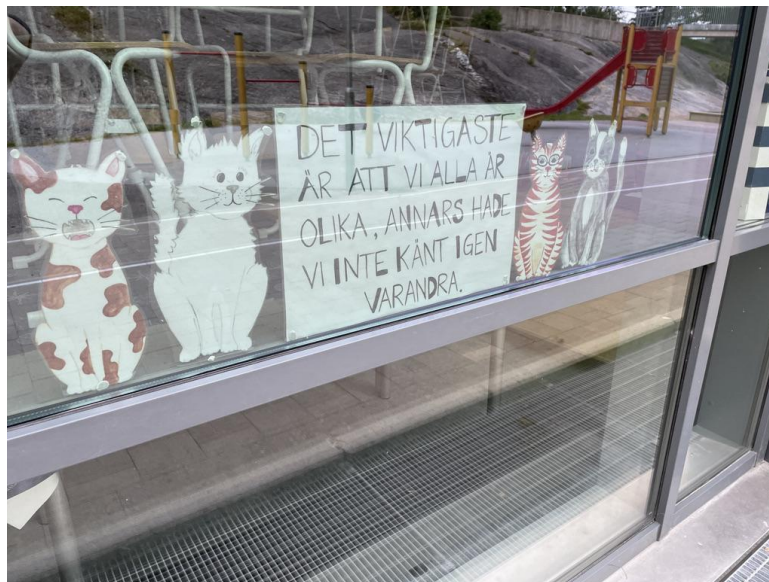 DET VIKTIGASTE
ÄR ATT VI ALLA ÄR
OLIKA, ANNARS HADE
VI INTE KÄNT IGEN
VARANDRA.